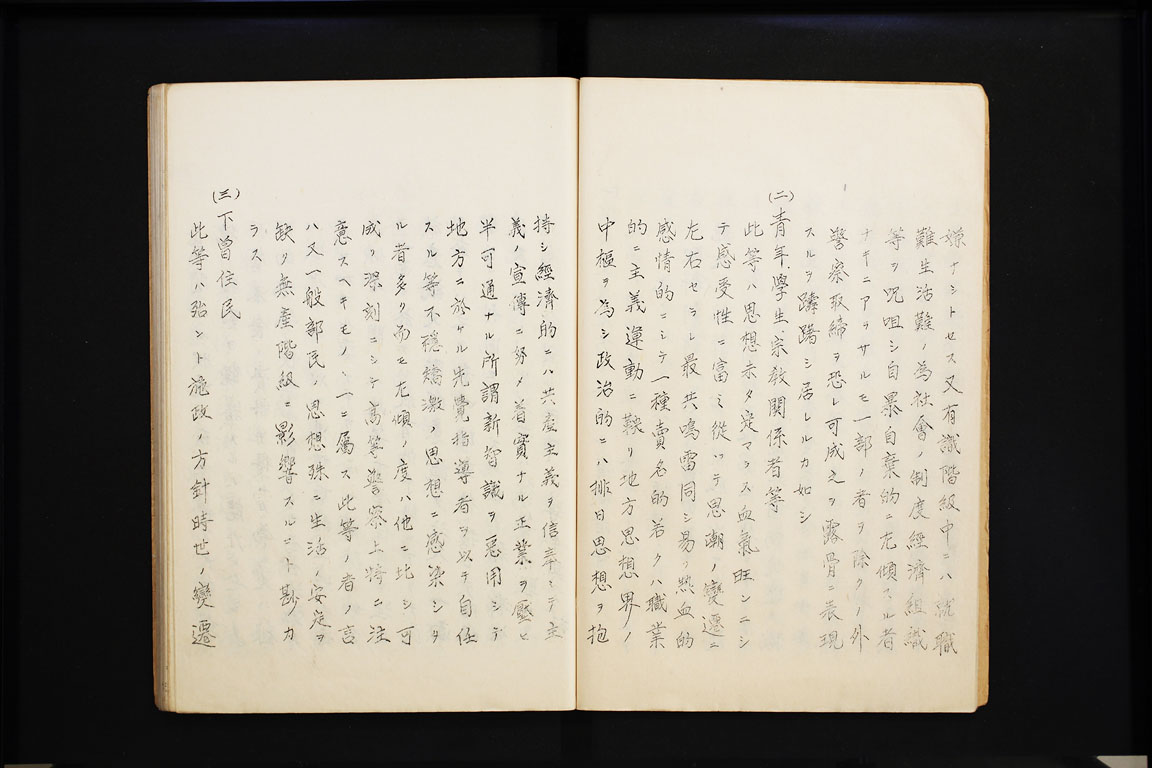 嫌ナシトセス又有識階級中ニハ就職
難生活難ノ為社會ノ制度經濟組織
等ヲ呪咀シ自暴自棄的ニ左傾スル者
ナキニアラサルモ一部ノ者ヲ除クノ外
警察取締ヲ恐レ可成之ヲ露骨ニ表現
スルヲ躊躇シ居レルカ如シ
(二)青年、學生、宗教關係者等
此等ハ思想未タ定マラス血氣旺ンニシ
テ感受性ニ富ミ從ツテ思潮ノ變遷ニ
左右セラレ最共鳴雷同シ易ク熱血的
感情的ニシテ一種賣名的若クハ職業
的ニ主義運動ニ趨リ地方思想界ノ
中樞ヲ為シ政治的ニハ排日思想ヲ抱
持シ經濟的ニハ共産主義ヲ信奉シテ主
義ノ宣傳ニ努メ着實ナル正業ヲ壓ヒ
半可通ナル所謂新智識ヲ惡用シテ
地方ニ於ケル先覺指導者ヲ以テ自任
スル等不穩矯激ノ思想ニ感染シタ
ル者多ク而モ左傾ノ度ハ他ニ比シ可
成リ深刻ニシテ高等警察上特ニ注
意スヘキモノハ一ニ屬ス此等ノ者ノ言
ハ又一般部民ノ思想殊ニ生活ノ安定ヲ
缺ク無産階級ニ影響スルコト尠カ
ラス
(三)下曾住民
此等ハ殆ント施政ノ方針時世ノ變遷